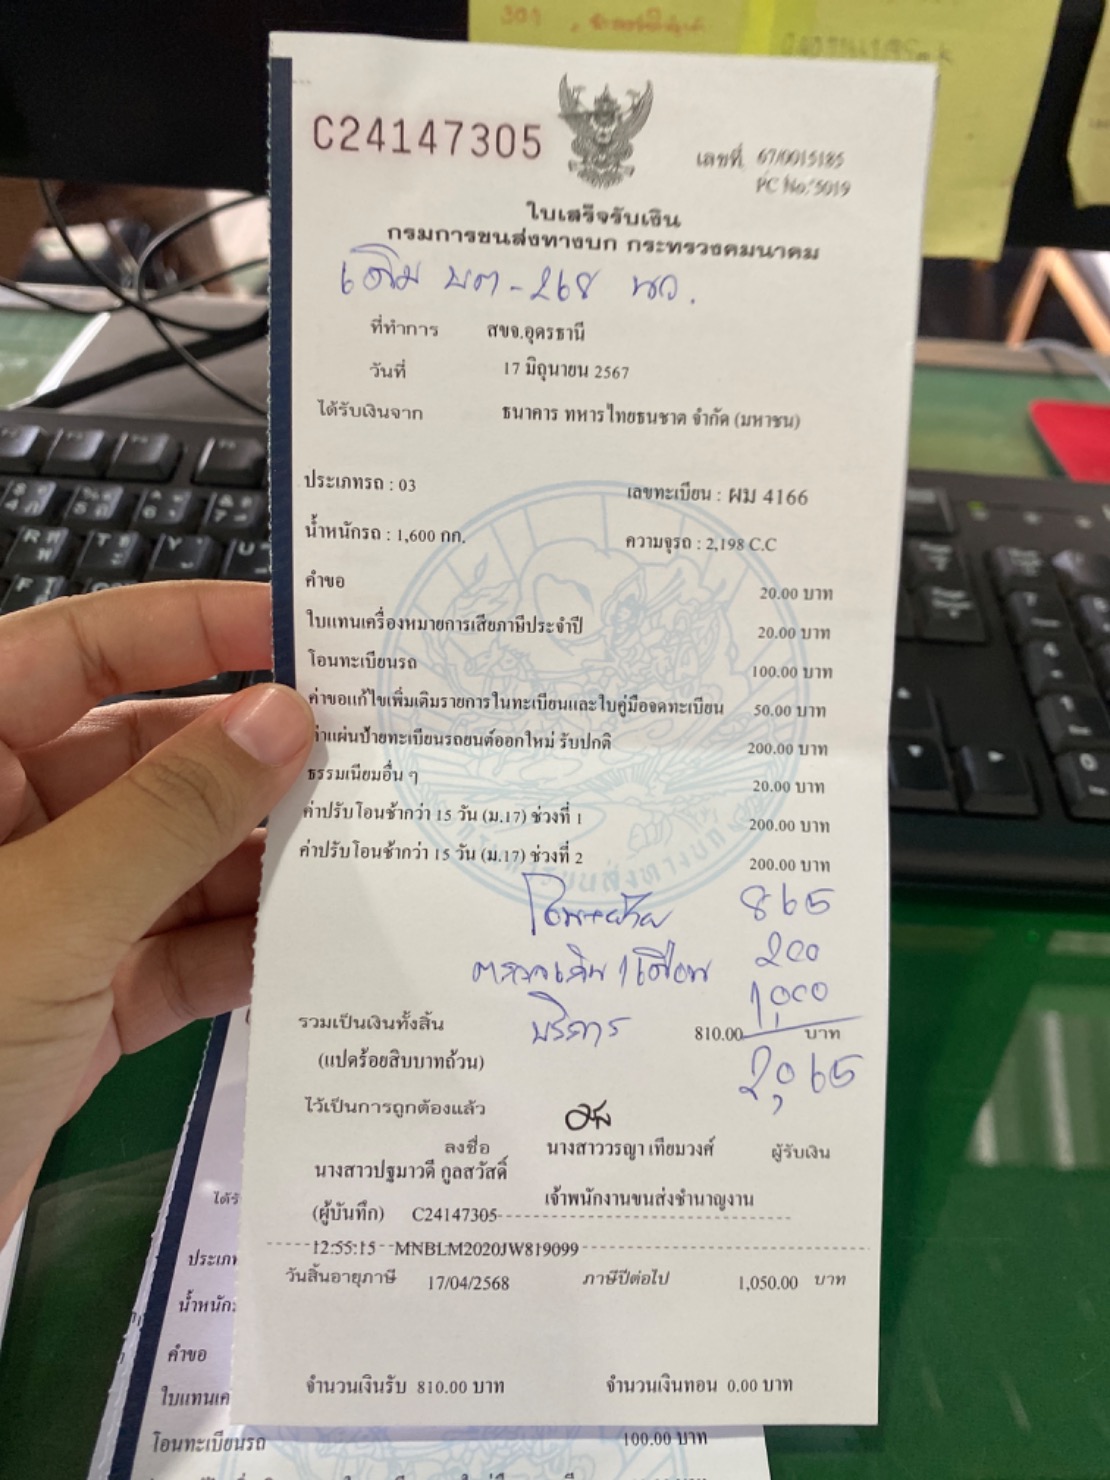 C24147305
เลขที่ 67/0015185
PC No. 5019
ใบเสร็จรับเงิน
กรมการขนส่งทางบก กระทรวงคมนาคม
เดิม บต-268 นว.
ที่ทำการ สขจ.อุดรธานี
วันที่ 17 มิถุนายน 2567
ได้รับเงินจาก ธนาคาร ทหารไทยธนชาต จำกัด (มหาชน)
ประเภทรถ : 03 เลขทะเบียน : ผม 4166
น้ำหนักรถ : 1,600 กก. ความจุรถ : 2,198 C.C
คำขอ 20.00 บาท
ใบแทนเครื่องหมายการเสียภาษีประจำปี 20.00 บาท
โอนทะเบียนรถ 100.00 บาท
ค่าขอแก้ไขเพิ่มเติมรายการในทะเบียนและใบคู่มือจดทะเบียน 50.00 บาท
ค่าแผ่นป้ายทะเบียนรถยนต์ออกใหม่ รับปกติ 200.00 บาท
ธรรมเนียมอื่น ๆ 20.00 บาท
ค่าปรับโอนช้ากว่า 15 วัน (ม.17) ช่วงที่ 1 200.00 บาท
ค่าปรับโอนช้ากว่า 15 วัน (ม.17) ช่วงที่ 2 200.00 บาท
โอน+ย้าย 865
ตรวจเกิน 1 เดือน 200
บริการ 1,000
รวมเป็นเงินทั้งสิ้น 810.00 บาท
(แปดร้อยสิบบาทถ้วน) 2,065
ไว้เป็นการถูกต้องแล้ว
ลงชื่อ นางสาววรญา เทียมวงศ์ ผู้รับเงิน
นางสาวปฐมาวดี กูลสวัสดิ์
เจ้าพนักงานขนส่งชำนาญงาน
(ผู้บันทึก) C24147305
12:55:15 MNBLM2020JW819099
วันสิ้นอายุภาษี 17/04/2568 ภาษีปีต่อไป 1,050.00 บาท
จำนวนเงินรับ 810.00 บาท จำนวนเงินทอน 0.00 บาท
ได้รั
ประเภท
น้ำหนัก
คำขอ
ใบแทนเค
โอนทะเบียนรถ 100.00 บาท